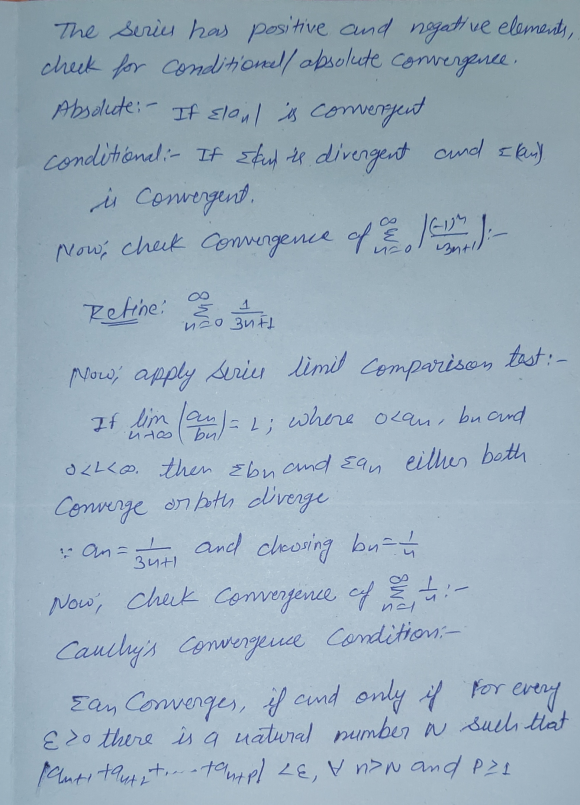 The series has positive and negative elements,
check for conditional/absolute convergence.
Absolute:- If Σ|an| is convergent
Conditional:- If Σ|an| is divergent and Σ(an)
is convergent.
Now, check convergence of ∞Σn=0 |(-1)^n/3n+1|:-
Refine: ∞Σn=0 1/3n+1
Now, apply series limit comparison test:-
If lim n→∞ (an/bn) = L; where 0<an, bn and
0<L<∞. then Σbn and Σan either both
converge or both diverge
∵ an = 1/3n+1 and choosing bn = 1/n
Now, check convergence of ∞Σn=1 1/n:-
Cauchy's convergence condition:-
Σan converges, if and only if for every
ε>0 there is a natural number N such that
|an+1 + an+2 + ... + an+p| < ε, ∀ n>N and P≥1